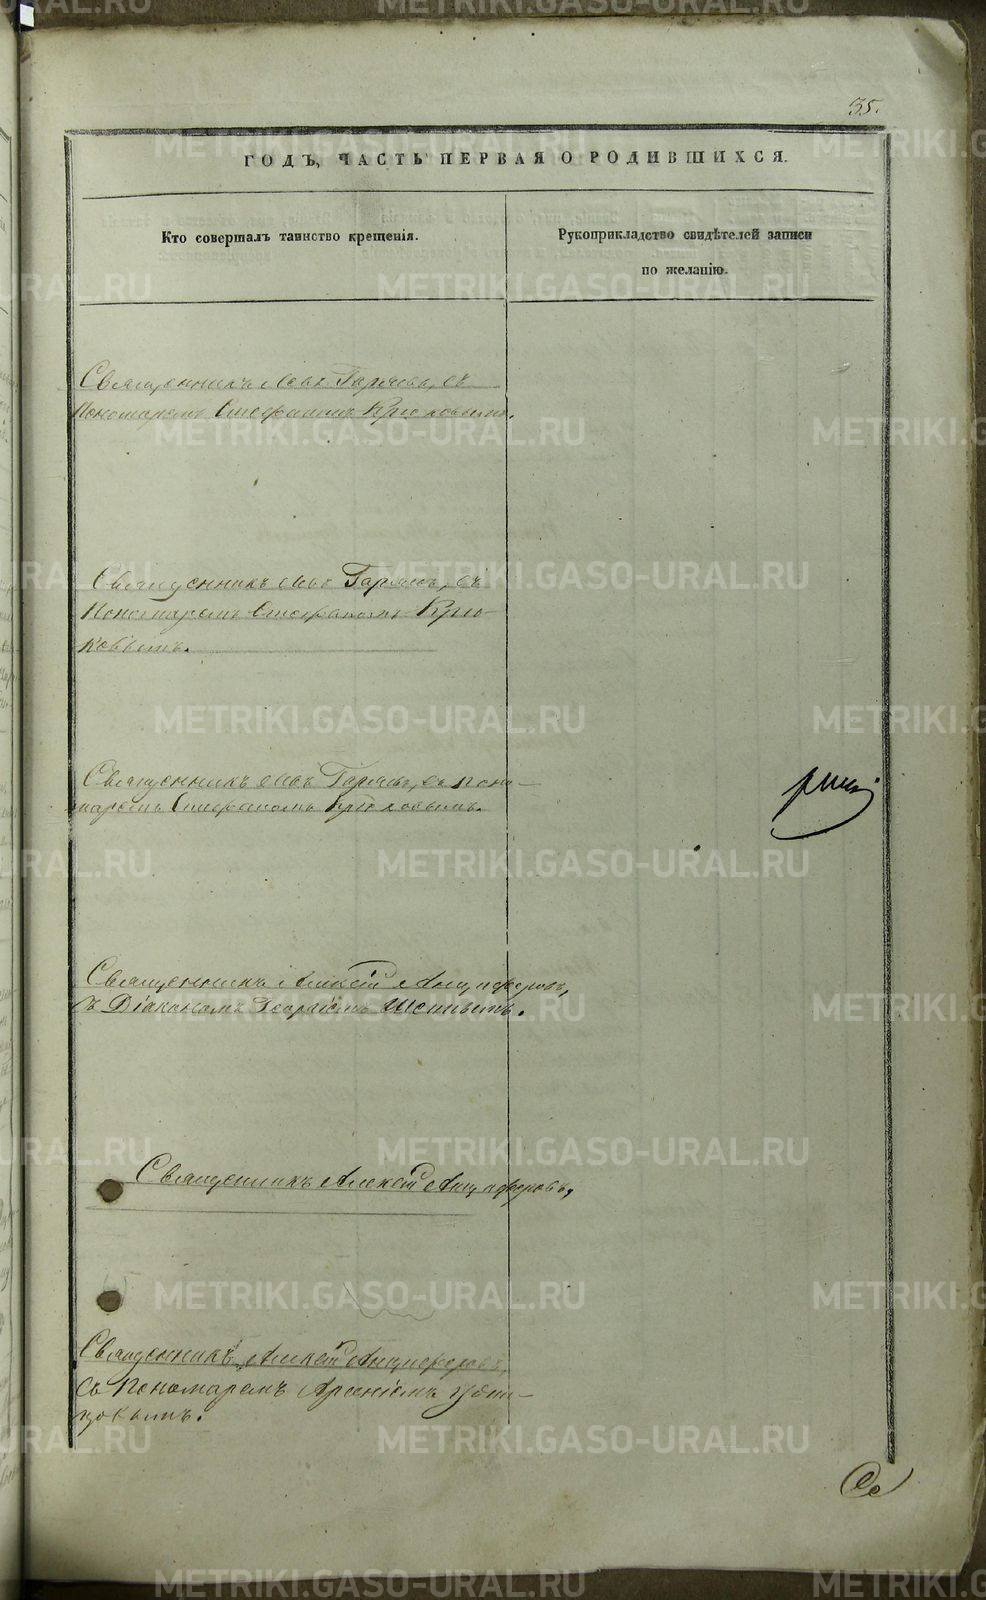 35.
ГОДЪ, ЧАСТЬ ПЕРВАЯ О РОДИВШИХСЯ.
Кто совершалъ таинство крещенія.
Рукоприкладство свидѣтелей записи
по желанію.
Священникъ Левъ Гаряевъ, съ
Пономаремъ Стефаномъ Крюковымъ.
Священникъ Левъ Гаряевъ, съ
Пономаремъ Стефаномъ Крю-
ковымъ.
Священникъ Левъ Гаряевъ, съ Поно-
маремъ Стефаномъ Крюковымъ.
Священникъ Алексій Анциферовъ,
съ Діакономъ Георгіемъ
Священникъ Алексій Анциферовъ,
Священникъ Алексій Анциферовъ,
Съ Пономаремъ Арсеніемъ
METRIKI.GASO-URAL.RU